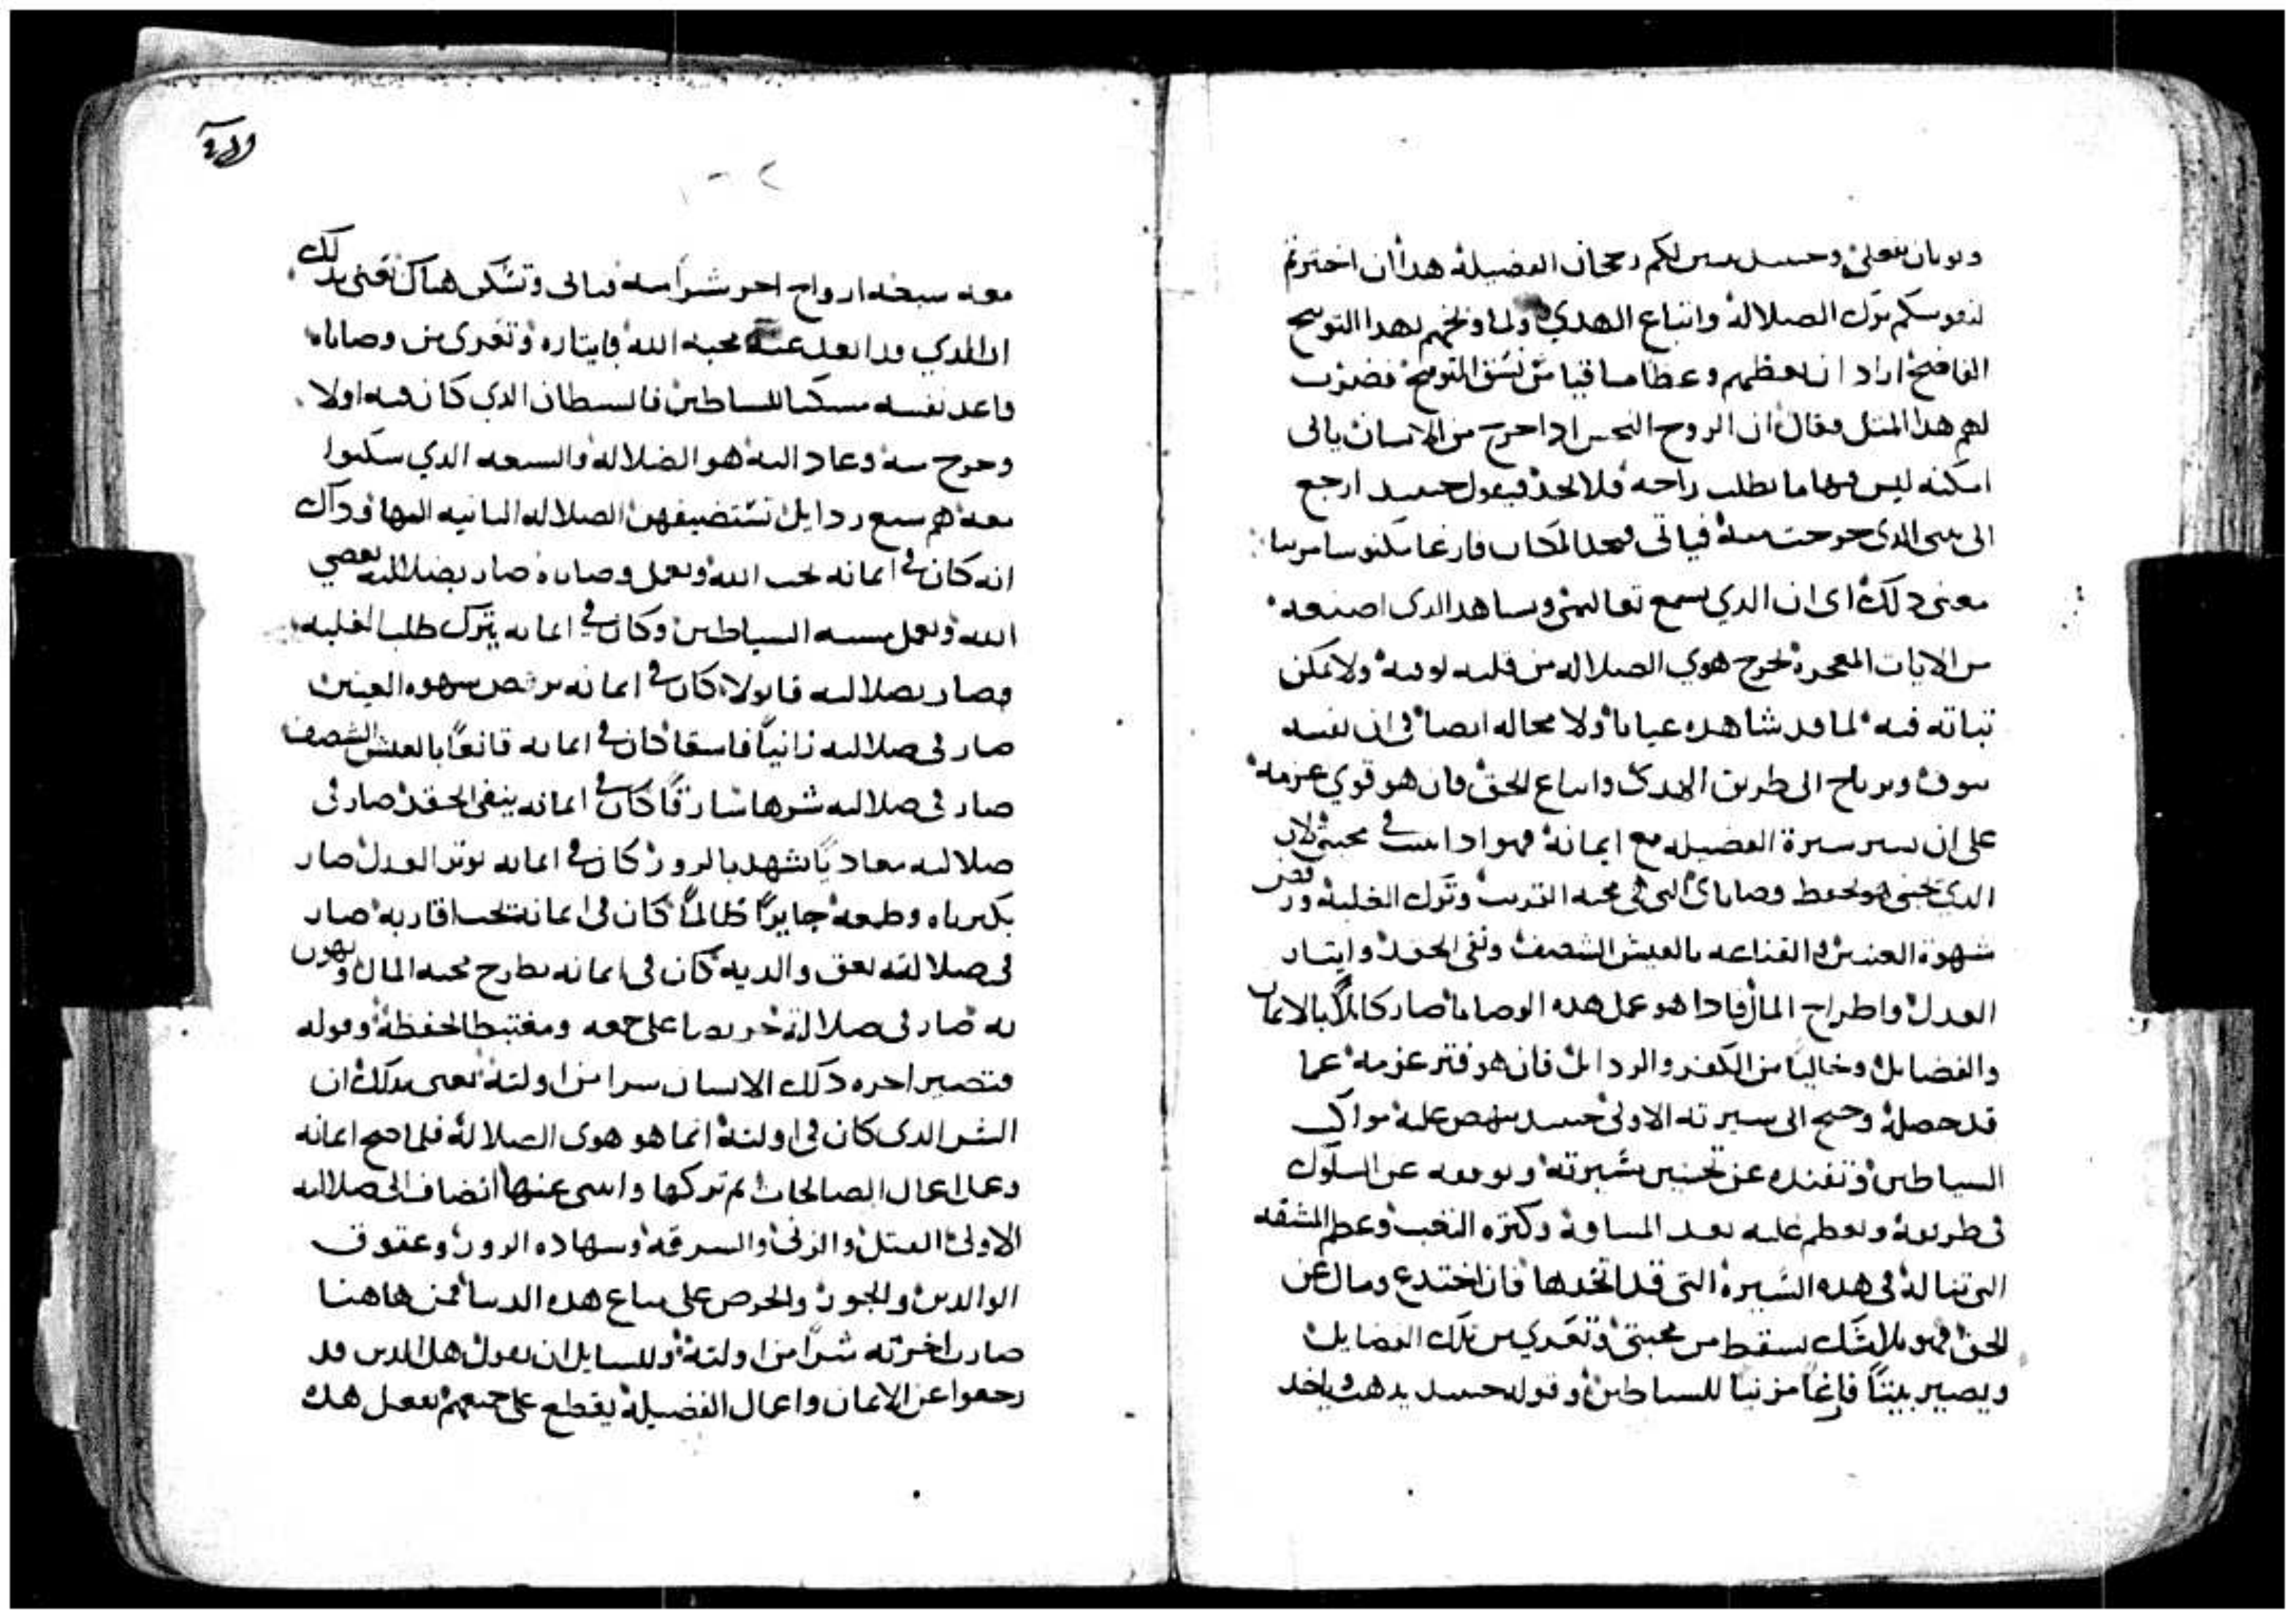 وحينيد يبين لكم رجحان الفضيله هذا ان اخترتم
لنفوسكم ترك الضلاله واتباع الهدي ولما وبخهم بهذا التوبيخ
اراد ان يعظهم وعظا من نسق التوبيخ فضرب
لهم هذا المثل وقال ان الروح النجس اذا خرج من الانسان ياتي
امكنه ليس فيها ما يطلب راحه فلا يجد فيقول حينيد ارجع
الى بيتي الذي خرجت منه فياتي فيجد المكان فارغا مكنوسا مزينا
معنى ذلك اي ان الذي يسمع تعاليمي ويشاهد الذي اصنعه
من الايات المعجزه يخرج هوي الضلاله من قلبه لوقته ولا يمكن
ثباته فيه لما قد شاهده عيانا ولا محاله ايضا في ان نفسه
تتوق وترتاح الى طريق الهدى واتباع الحق فان هو قوي عزمه
على ان يسير سيرة الفضيله مع ايمانه فهو اذا ثبت في محبتي لان
الذي يحبني هو يحفظ وصاياي التي هي محبه القريب وترك الغلبه ورفض
شهوة العينين والقناعه بالعيش الشصف ونفي الحقد وايثار
العدل واطراح المال فاذا هو عمل هذه الوصايا صار كاملا بالايمان
والفضايل وخاليا من الكفر والردايل فان هو فتر عزمه عما
قد حصله وجنح الى سيرته الاولى حينيد ينهض عليه مواكب
الشياطين وتفنده عن تحسين سيرته وتوقفه عن السلوك
في طريقه ويعظم عليه بعد المسافه وكثره التعب وعظم المشقه
التي تناله في هذه السيره التي قد اتخدها فان اختدع ومال عن
الحق فهو بلا شك يسقط من محبتي وتعري من تلك الفضايل
ويصير بيتا فارغا مزينا للشياطين وقوله حينيد يدهب وياخد
معه سبعه ارواح اخر شرا منه فياتي وتسكن هناك فعني بدلك
ان الذي قد ابعد عنه محبه الله بايثاره وتعرى من وصاياه
واعد نفسه مسكنا للشياطين فالشيطان الذي كان فيه اولا
وخرج منه وعاد اليه هو الضلاله والسبعه الذي سكنوا
معه هم سبع ردايل تستضيفهن الضلاله الثانيه اليها وداك
انه كان في ايمانه يحب الله ويعمل وصاياه صار بضلالته يعصي
الله ويعمل مشيه الشياطين وكان في ايمانه يترك طلب الغلبه
وصار بضلالته قاتولا كان في ايمانه يرفض شهوه العينين
صار في ضلالته زانيا فاسقا كان في ايمانه قانعا بالعيش الشصف
صار في ضلالته شرها سارقا كان في ايمانه ينفي الحقد صار في
ضلالته معاديا يشهد بالزور كان في ايمانه يوثر العدل صار
بكبرياه وطمعه جايرا ظالما كان في ايمانه يحب اقاربه صار
في ضلالته يعق والديه كان في ايمانه يطرح محبه المال ويهون
به صار في ضلالته حريصا على جمعه ومغتبطا لحفظه وقوله
فتصير اخره دلك الانسان شرا من اولته يعني بدلك ان
الشر الذي كان في اولته انما هو هوى الضلاله فلما صح ايمانه
وعمل اعمال الصالحات ثم تركها وانثنى عنها انضاف الى ضلالته
الاولى القتل والزنى والسرقه وشهاده الزور وعقوق
الوالدين والجور والحرص على متاع هذه الدنيا فمن هاهنا
صارت اخرته شرا من اولته وللسايل ان يقول هل الذين قد
رجعوا عن الايمان واعمال الفضيله يقطع على جميعهم بفعل هذه